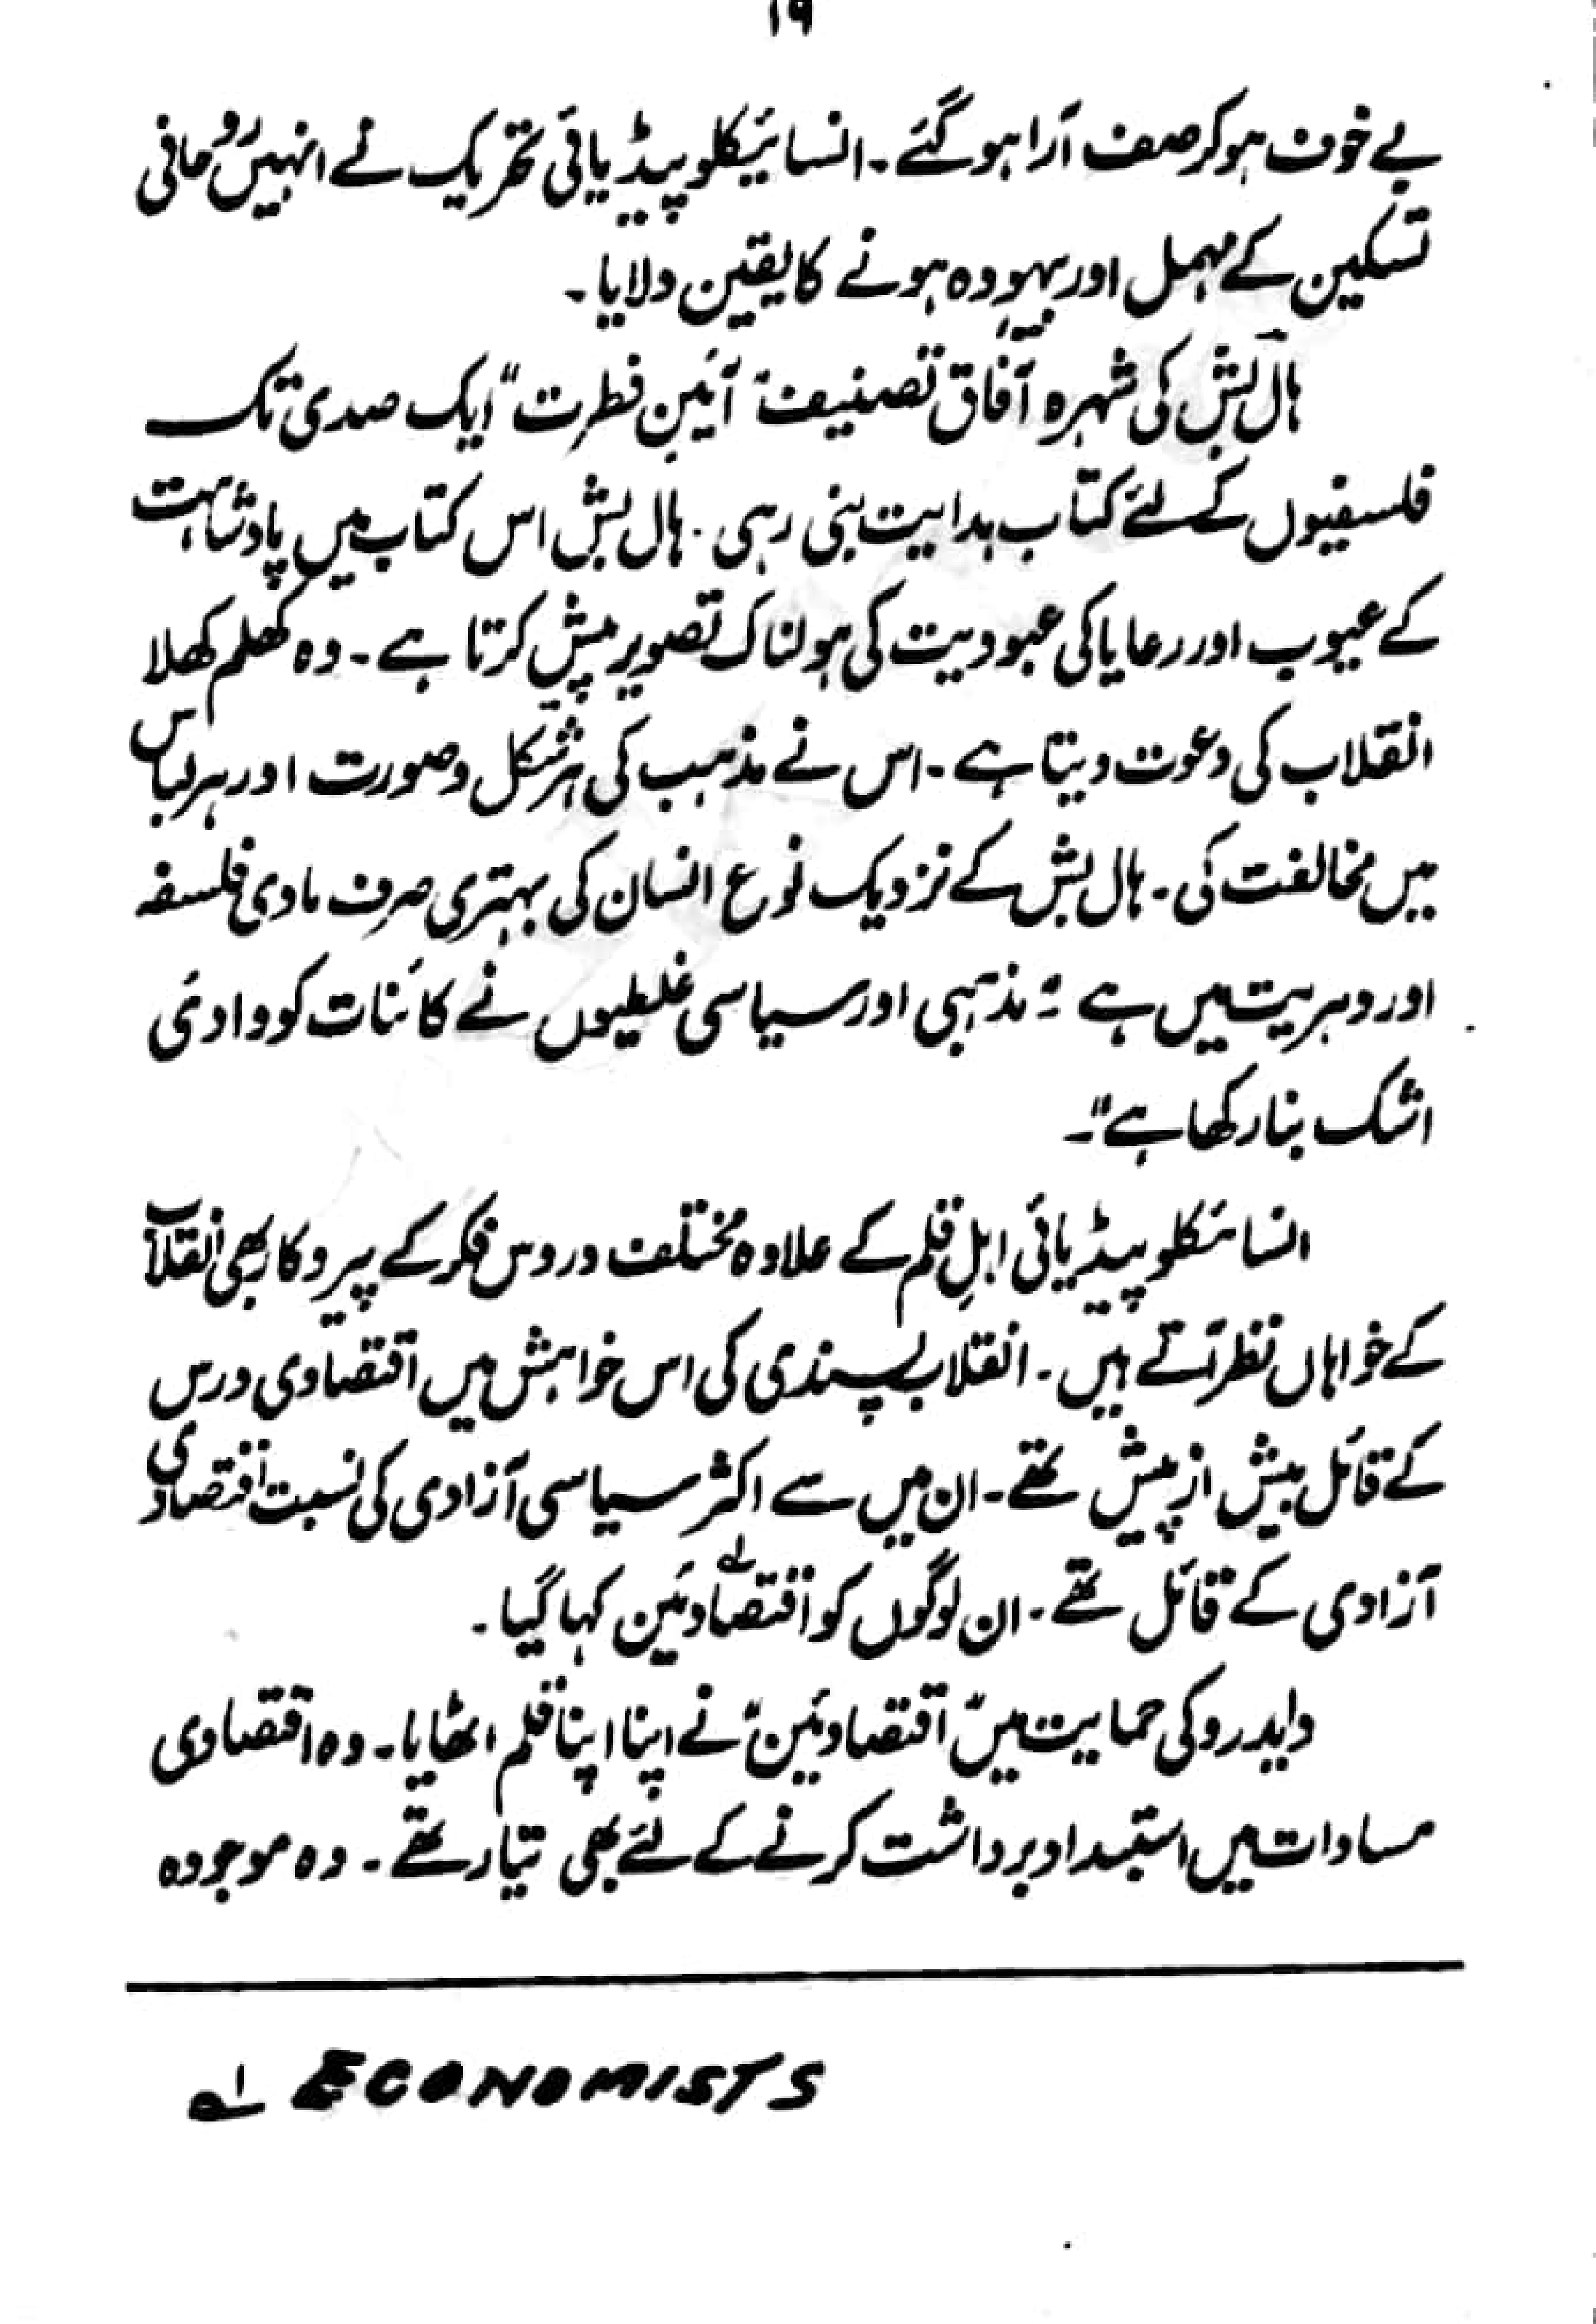 ۱۹
بے خوف ہو کر صف آرا ہو گئے ۔ انسائیکلو پیڈیائی تحریک نے انہیں روحانی
تسکین کے مہمل اور بیہودہ ہونے کا یقین دلایا ۔
ہال بش کی شہرہ آفاق تصنیف "آئین فطرت" ایک صدی تک
فلسفیوں کے لئے کتاب ہدایت بنی رہی ۔ ہال بش اس کتاب میں پادشاہت
کے عیوب اور رعایا کی عبودیت کی ہولناک تصویر پیش کرتا ہے ۔ وہ کھلم کھلا
انقلاب کی دعوت دیتا ہے ۔ اس نے مذہب کی ہر شکل و صورت اور ہر لباس
میں مخالفت کی ۔ ہال بش کے نزدیک نوع انسان کی بہتری صرف مادی فلسفہ
اور دہریت میں ہے "مذہبی اور سیاسی غلطیوں نے کائنات کو وادئ
اشک بنا رکھا ہے" ۔
انسائیکلو پیڈیائی اہلِ قلم کے علاوہ مختلف دروس فکر کے پیروکار بھی انقلاب
کے خواہاں نظر آتے ہیں ۔ انقلاب پسندی کی اس خواہش میں اقتصادی درس
کے قائل بیش از پیش تھے ۔ ان میں سے اکثر سیاسی آزادی کی نسبت اقتصادی
آزادی کے قائل تھے ۔ ان لوگوں کو اقتصادئین لہ کہا گیا ۔
دایدرو کی حمایت میں "اقتصادئین" نے اپنا اپنا قلم اٹھایا ۔ وہ اقتصادی
مساوات میں استبداد برداشت کرنے کے لئے بھی تیار تھے ۔ وہ موجودہ
لہ ECONOMISTS